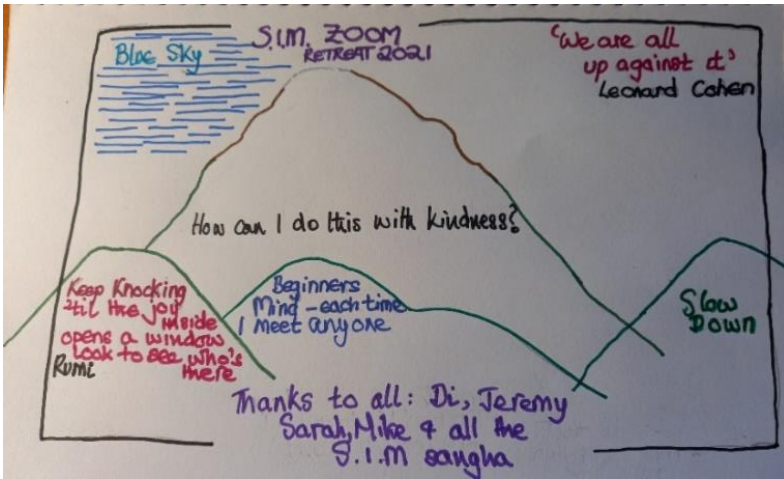 S.I.M. ZOOM
RETREAT 2021
Bloe Sky
'We are all
up against it'
Leonard Cohen
How can I do this with kindness?
Keep Knocking
'til the joy
inside
opens a window
look to see who's
there
Rumi
Beginners
Mind - each time
I meet anyone
Slow
Down
Thanks to all: Di, Jeremy
Sarah, Mike & all the
S.I.M sangha